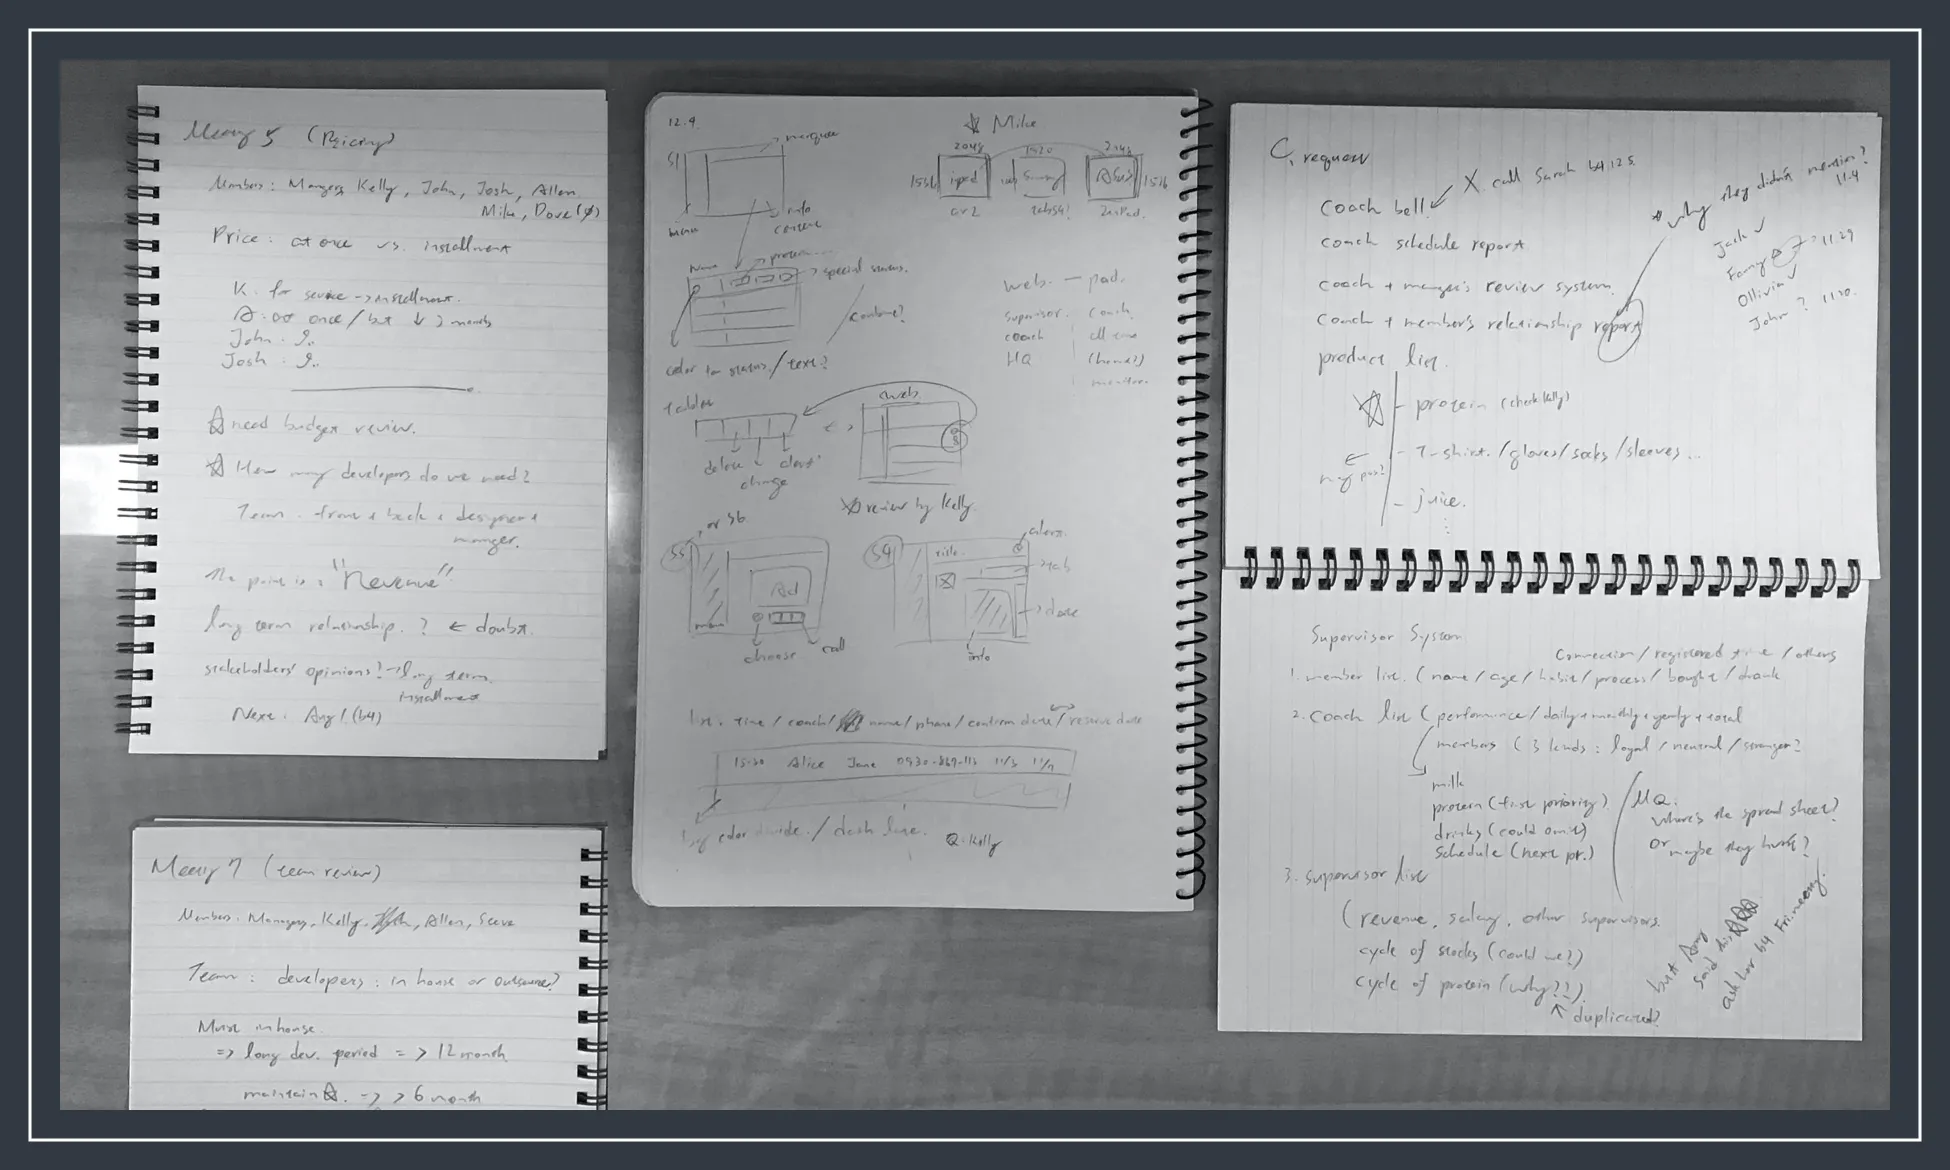 Meeting 5 (Pricing)
Members: Managers, Kelly, John, Josh, Allen
Mike, Dove (
Price: at once vs. installment
K: for service -> installment.
A: at once / but ↓ 2 months
John:
Josh:
☆ need budget review.
☆ How many developers do we need?
Team: front + back + designer +
manager.
The point is: "Revenue"
long term relationship. ? ← doubt.
stakeholders' opinions! -> long term
installment
Next: Aug / (b4)
Meeting 7 (team review)
Members: Managers, Kelly, Allen, Steve
Team: developers: in house or outsource?
Must inhouse.
=> long dev. period => 12 month
maintain ☆. -> > 6 month
12.9.
☆ Mike
S1
marquee
menu
info
content
2048
1920
2048
1536
ipad
Samsung
ASUS
1536
air2
tabs4!
ZenPad.
Name
protein....
special status.
combine?
color for status. / text?
web. — pad.
supervisor. coach.
coach all time
HQ (home?)
monitor.
tablet
web.
change
☆ review by Kelly.
S5
or S6
Ad
menu
choose
call
S9
title.
alert.
tab
date
info
list: time / coach / name / phone / confirm date / reserve date
15:30 Alice Jane 0930-867-113 11/3 11/7
by color divide. / dash line.
Q: Kelly
C. request
X. call Sarah b4 12.5.
coach bell.
coach schedule report
coach + manager's review system.
coach + member's relationship report
product list.
☆ - protein (check Kelly)
- T-shirt. / gloves / socks / sleeves ...
- juice.
* why they didn't mention?
11.4
Jack ✓
11.29
Ollivia ✓
John ? 11.20.
Supervisor System
Connection / registered time / others
1. member list. (name / age / habit / process / bought / drank
2. coach list (performance / daily + monthly + yearly + total
members (3 kinds: loyal / neutral / stranger?
milk
protein (first priority)
drinks (could omit)
schedule (next pr.)
MQ.
where's the spread sheet?
Or maybe they have?
3. supervisor list
(revenue, salary, other supervisors.
cycle of stocks (could we?)
cycle of protein (why??).
↑ duplicated?
but Amy
said this ☆☆☆
ask her b4 Fri. meeting.